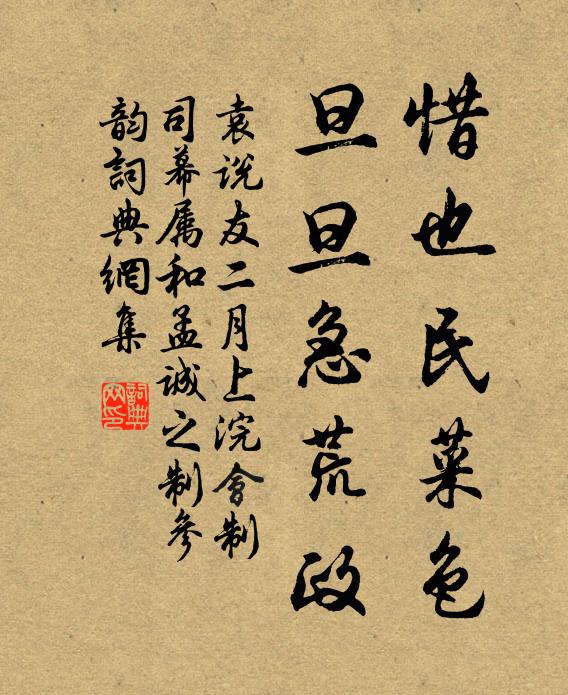 惜也民菜色
旦旦急荒政
袁说友二月上浣会制
司幕属和孟诚之制参
韵词典網集
詞典網印